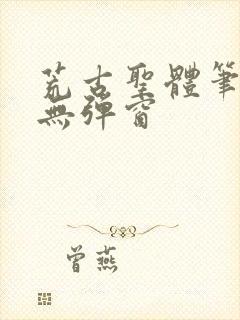 荒古聖體筆
無彈窗
曾燕